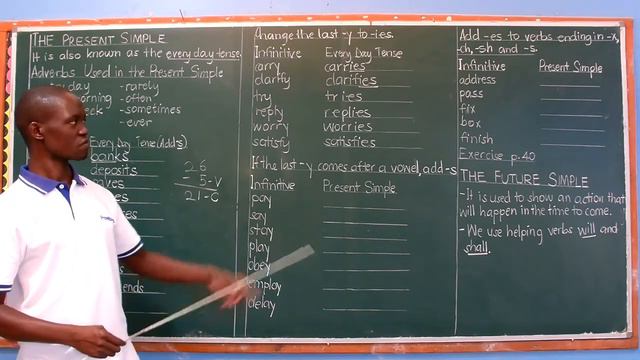 THE PRESENT SIMPLE
It is also known as the every day tense.
Adverbs Used in the Present Simple
day - rarely
- often
- sometimes
- ever
Every Day Tense (Add s)
banks
deposits
26
- 5-V
21-C
Change the last -y to -ies.
Infinitive Every Day Tense
carry carries
clarify clarifies
try tries
reply replies
worry worries
satisfy satisfies
If the last -y comes after a vowel, add -s
Infinitive Present Simple
pay
say
stay
play
obey
employ
delay
Add -es to verbs ending in -x,
-ch, -sh and -s.
Infinitive Present Simple
address
pass
fix
box
finish
Exercise p.40
THE FUTURE SIMPLE
- It is used to show an action that
will happen in the time to come.
- We use helping verbs will and
shall.